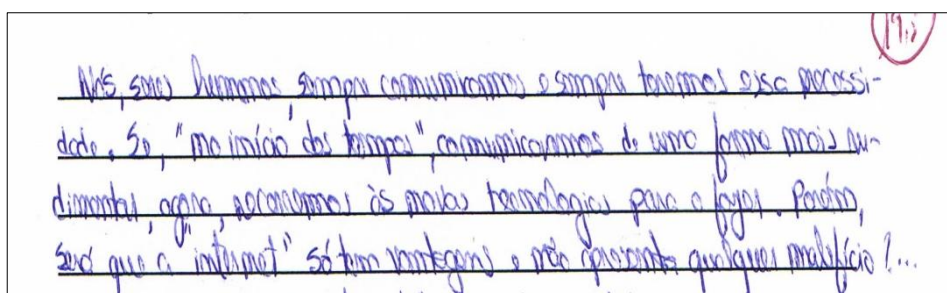 Nós, seres humanos, sempre comunicamos e sempre teremos essa necessi-
dade. Se, "no início dos tempos", comunicávamos de uma forma mais ru-
dimentar, agora, recorremos às novas tecnologias para o fazer. Porém,
será que a "internet" só tem vantagens e não apresenta qualquer malefício?...